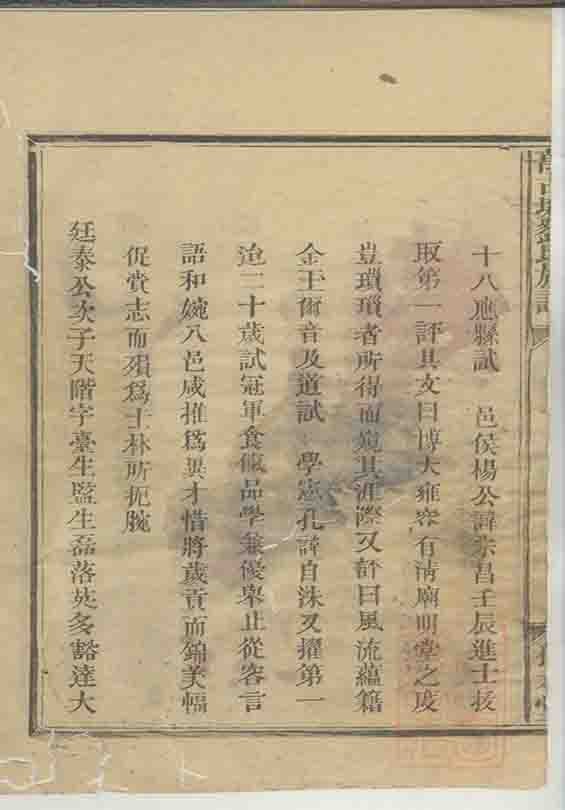 十八應縣試 邑侯楊公諱宗昌壬辰進士拔
取第一評其文曰博大雍容有淸廟明堂之度
豈瑣瑣者所得而窺其涯際又評曰風流蘊籍
金玉爾音及道試 學憲孔諱自洙又擢第一
迨二十歲試冠軍食餼品學兼優舉止從容言
語和婉八邑咸推爲異才惜將歲貢而錦美幅
促賞志而殞爲士林所扼腕
廷泰公次子天階字臺生監生磊落英多豁達大
劉氏族譜